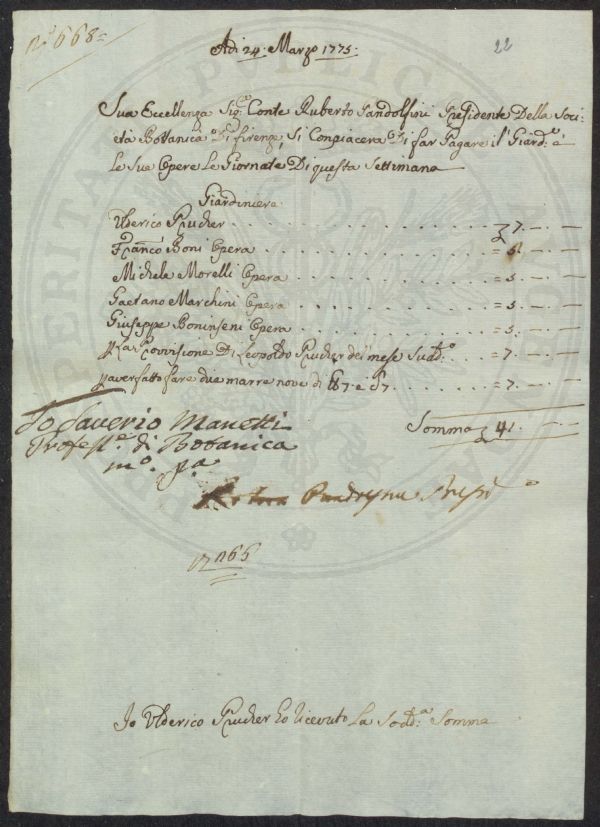 n.° 668
22
Adi 24: Marzo 1775:
Sua Eccellenza Sig:e Conte Ruberto Pandolfini Presidente Della Soci:
età Bottanica Di firenze, Si Conpiacera Di far Pagare il Giard:e é
Le Sue Opere Le Giornate Di questa Settimana
Giardiniere
Ulderico Prucher . . . . . . . . . . . . 7. — —
Franco Boni Opera . . . . . . . . . . = 5. — —
Michele Morelli Opera . . . . . . . . . = 5. — —
Gaetano Marchini Opera . . . . . . . . = 5. — —
Giuseppe Boninseni Opera . . . . . . . = 5. — —
P La Provisione Di Leopoldo Prucher del mese Sud:o = 7. — —
P aver fatto fare due marre nove di 7 e 7 . . . . = 7. — —
Somma 41. — —
Io Saverio Manetti
Profess.e di Botanica
m.o p.a
n 65
Io Ulderico Prucher ho ricevuto La Sod:a Somma
PUBLICAE